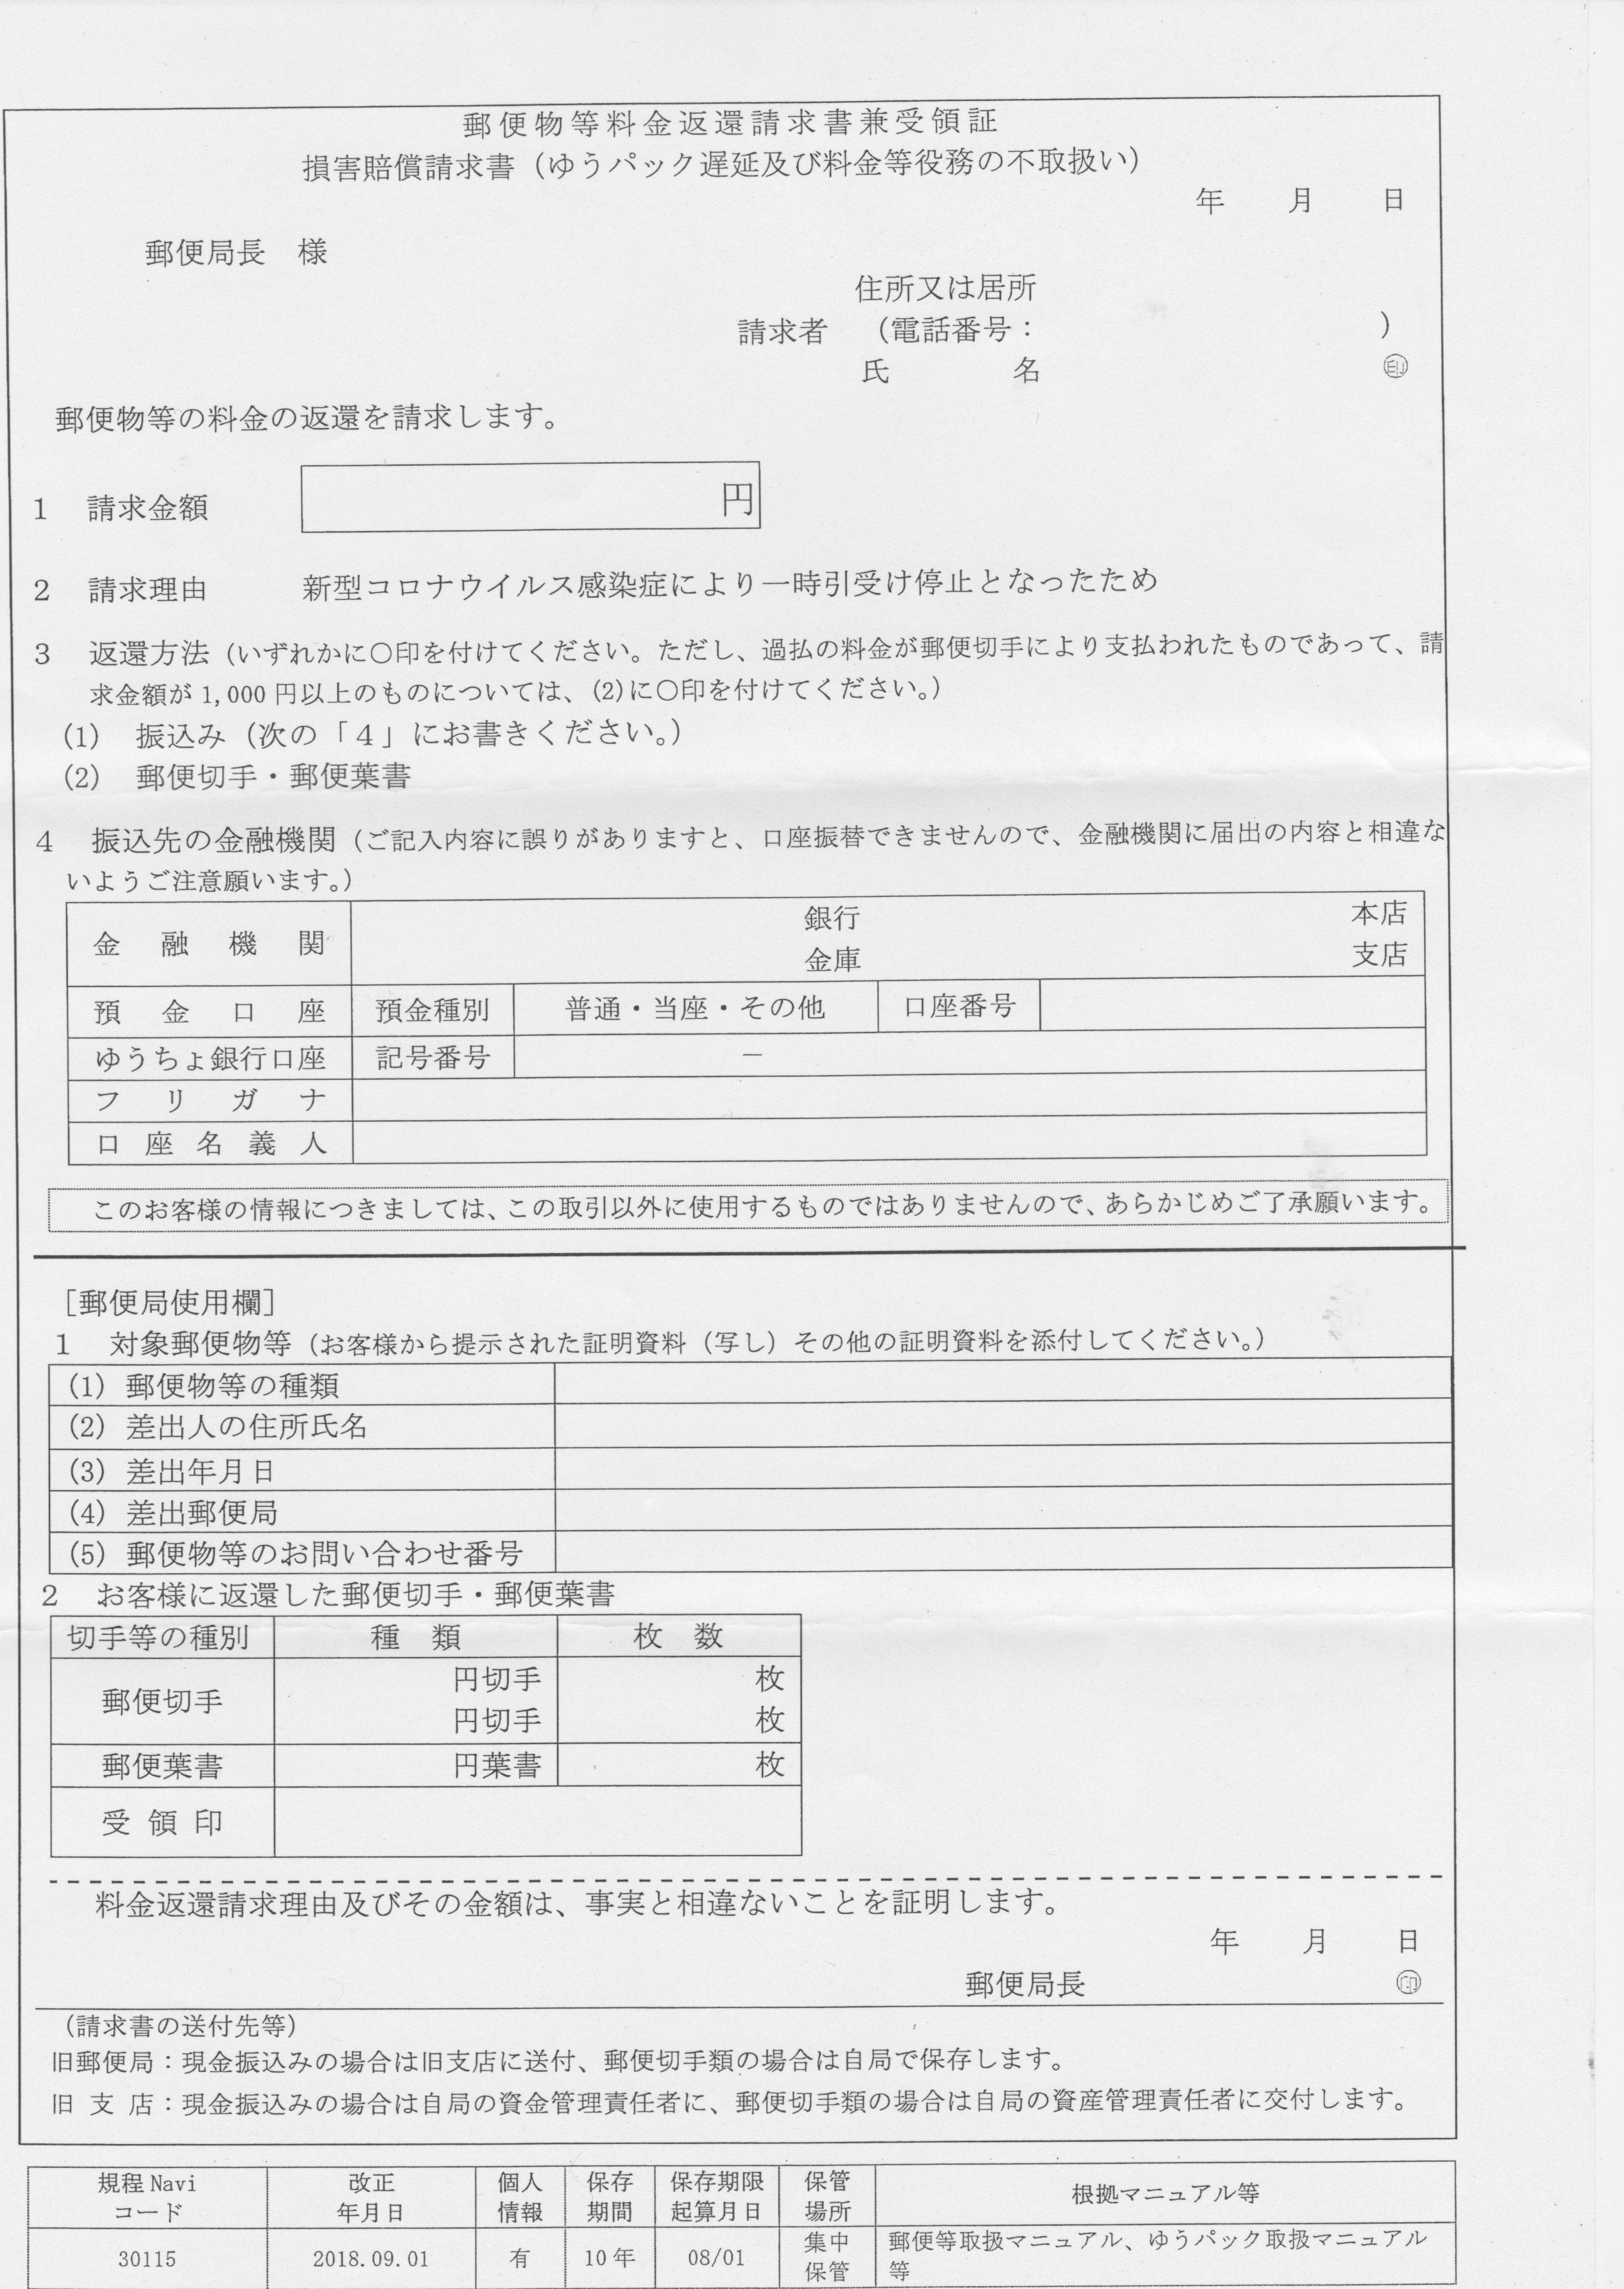 郵便物等料金返還請求書兼受領証
損害賠償請求書（ゆうパック遅延及び料金等役務の不取扱い）
年　月　日
郵便局長　様
住所又は居所
請求者　（電話番号：　）
氏　名　㊞
郵便物等の料金の返還を請求します。
1　請求金額　円
2　請求理由　新型コロナウイルス感染症により一時引受け停止となったため
3　返還方法（いずれかに〇印を付けてください。ただし、過払の料金が郵便切手により支払われたものであって、請
求金額が1,000円以上のものについては、(2)に〇印を付けてください。）
(1)　振込み（次の「4」にお書きください。）
(2)　郵便切手・郵便葉書
4　振込先の金融機関（ご記入内容に誤りがありますと、口座振替できませんので、金融機関に届出の内容と相違な
いようご注意願います。）
金融機関　銀行　本店
金庫　支店
預金口座　預金種別　普通・当座・その他　口座番号
ゆうちょ銀行口座　記号番号　－
フリガナ
口座名義人
このお客様の情報につきましては、この取引以外に使用するものではありませんので、あらかじめご了承願います。
［郵便局使用欄］
1　対象郵便物等（お客様から提示された証明資料（写し）その他の証明資料を添付してください。）
(1) 郵便物等の種類
(2) 差出人の住所氏名
(3) 差出年月日
(4) 差出郵便局
(5) 郵便物等のお問い合わせ番号
2　お客様に返還した郵便切手・郵便葉書
切手等の種別　種　類　枚　数
郵便切手　円切手　枚
円切手　枚
郵便葉書　円葉書　枚
受領印
料金返還請求理由及びその金額は、事実と相違ないことを証明します。
年　月　日
郵便局長　㊞
（請求書の送付先等）
旧郵便局：現金振込みの場合は旧支店に送付、郵便切手類の場合は自局で保存します。
旧 支 店：現金振込みの場合は自局の資金管理責任者に、郵便切手類の場合は自局の資産管理責任者に交付します。
規程Navi　改正　個人　保存　保存期限　保管　根拠マニュアル等
コード　年月日　情報　期間　起算月日　場所
30115　2018.09.01　有　10年　08/01　集中　郵便等取扱マニュアル、ゆうパック取扱マニュアル
保管　等